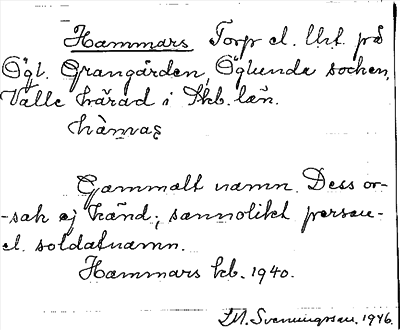 Hammars Torp el. lht. på
Ögl. Grangården, Öglunda socken,
Valle härad i Skb. län.
hàmaṣ
Gammalt namn. Dess or-
-sak ej känd; sannolikt person-
el. soldatnamn.
Hammars kb. 1940.
I.M. Svenningsson. 1946.